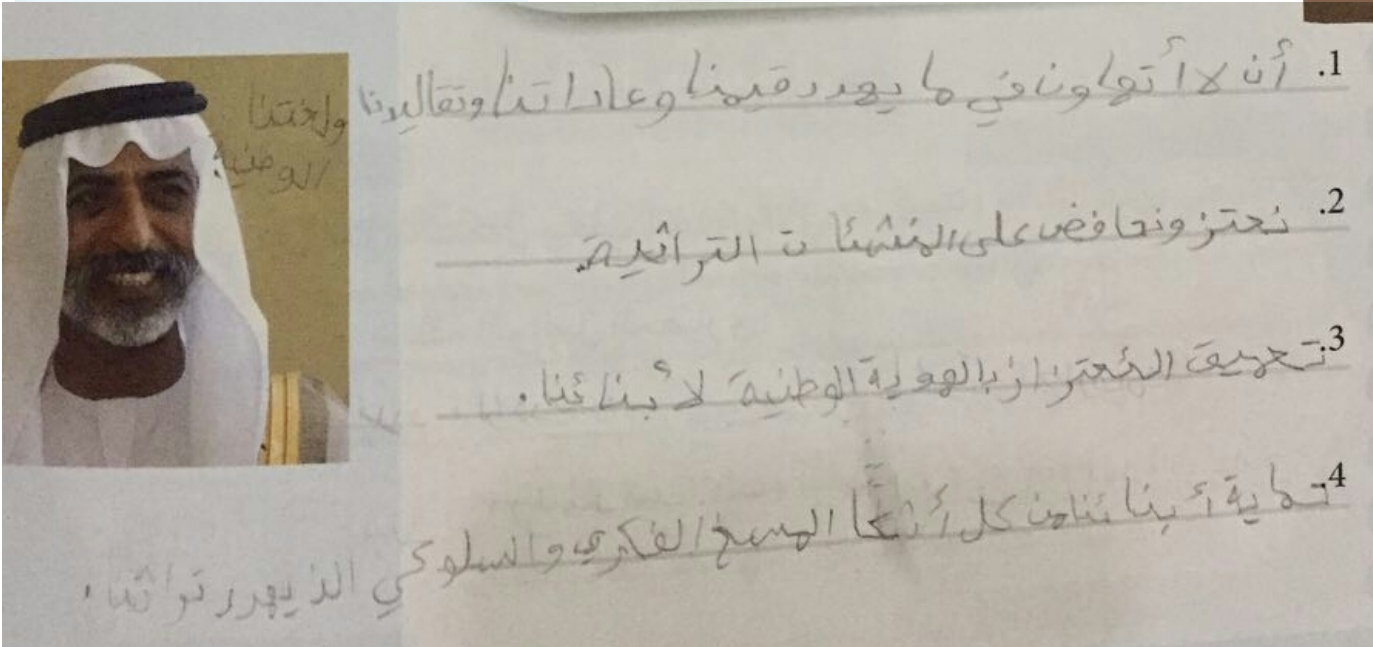 1. أن لا أتهاون في ما يهدد قيمنا وعاداتنا وتقاليدنا ولغتنا
الوطنية.
2. نعتز ونحافض على المنشئات التراثية.
3. تعميق الئعتزاز بالهوية الوطنية لأبنائنا.
4. حماية أبنائنا من كل المسخ الفكري والسلوكي الذي يهدد تراثنا.